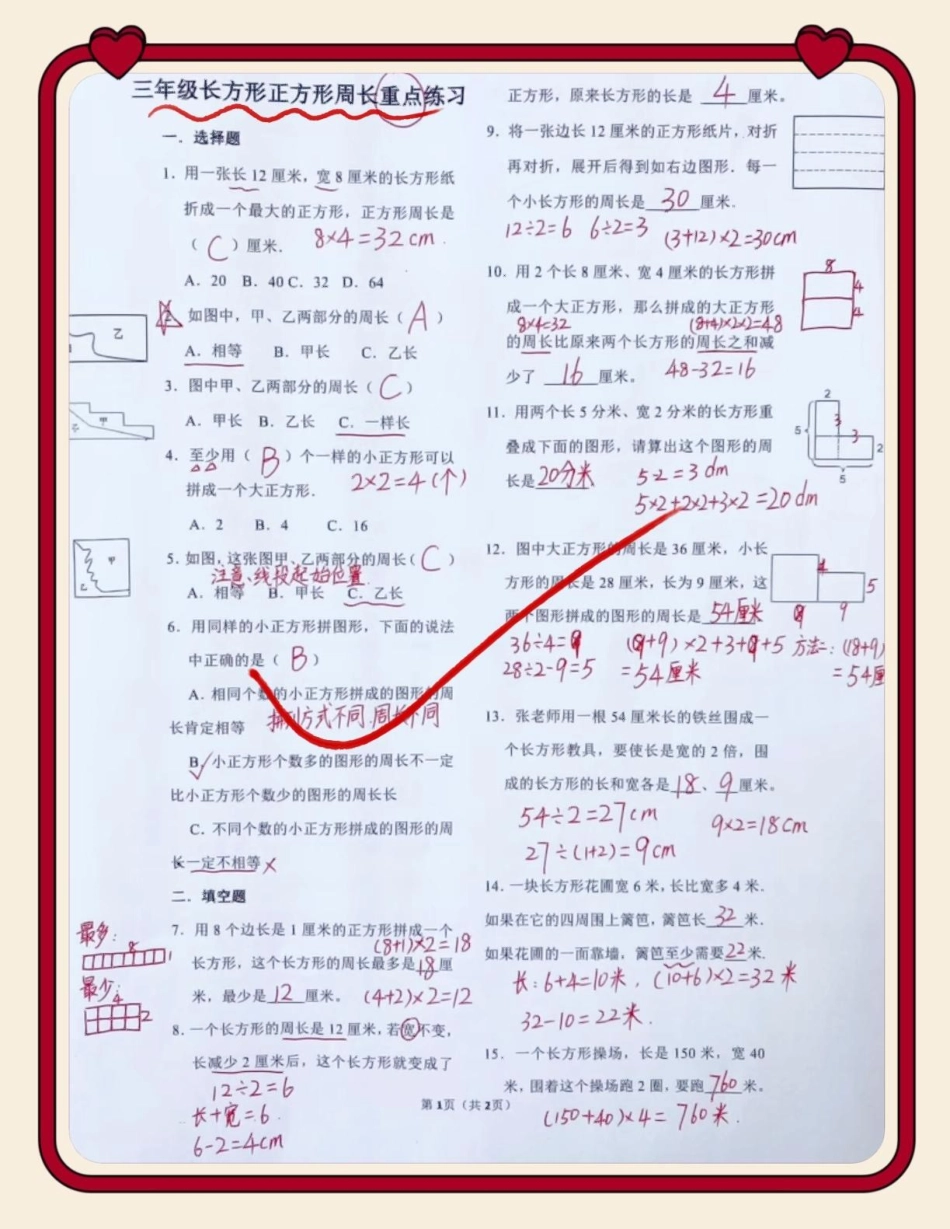 三年级长方形正方形周长重点练习
一．选择题
1．用一张长 12 厘米，宽 8 厘米的长方形纸
折成一个最大的正方形，正方形周长是
（ C ）厘米． 8×4=32cm．
A．20 B．40 C．32 D．64
2．如图中，甲、乙两部分的周长（ A ）
乙
A．相等 B．甲长 C．乙长
3．图中甲、乙两部分的周长（ C ）
甲
A．甲长 B．乙长 C．一样长
4．至少用（ B ）个一样的小正方形可以
拼成一个大正方形． 2×2=4（个）
A．2 B．4 C．16
5．如图，这张图甲、乙两部分的周长（ C ）
甲
乙
注意、线段起始位置
A．相等 B．甲长 C．乙长
6．用同样的小正方形拼图形，下面的说法
中正确的是（ B ）
A．相同个数的小正方形拼成的图形的周
长肯定相等 排列方式不同，周长不同
B✓小正方形个数多的图形的周长不一定
比小正方形个数少的图形的周长长
C．不同个数的小正方形拼成的图形的周
长一定不相等×
二．填空题
7．用 8 个边长是 1 厘米的正方形拼成一个
(8+1)×2=18
长方形，这个长方形的周长最多是18厘
米，最少是 12 厘米。 (4+2)×2=12
最多：
8
1
最少：
4
2
8．一个长方形的周长是 12 厘米，若宽不变，
长减少 2 厘米后，这个长方形就变成了
12÷2=6
长+宽=6．
6-2=4cm
正方形，原来长方形的长是 4 厘米。
9．将一张边长 12 厘米的正方形纸片，对折
再对折，展开后得到如右边图形．每一
个小长方形的周长是 30 厘米．
12÷2=6 6÷2=3 (3+12)×2=30cm
10．用 2 个长 8 厘米、宽 4 厘米的长方形拼
8
4
4
成一个大正方形，那么拼成的大正方形
8×4=32 (8+4)×2×2=48
的周长比原来两个长方形的周长之和减
少了 16 厘米。 48-32=16
11．用两个长 5 分米、宽 2 分米的长方形重
叠成下面的图形，请算出这个图形的周
长是20分米 5-2=3dm
5×2+2×2+3×2=20dm
2
5
3
3
2
5
12．图中大正方形的周长是 36 厘米，小长
方形的周长是 28 厘米，长为 9 厘米，这
两个图形拼成的图形的周长是 54厘米
4
5
9
9
36÷4=9 (9+9)×2+3+9+5 方法二：(18+9)
28÷2-9=5 =54厘米 =54厘
13．张老师用一根 54 厘米长的铁丝围成一
个长方形教具，要使长是宽的 2 倍，围
成的长方形的长和宽各是18、9厘米。
54÷2=27cm 9×2=18cm
27÷(1+2)=9cm
14．一块长方形花圃宽 6 米，长比宽多 4 米．
如果在它的四周围上篱笆，篱笆长 32 米．
如果花圃的一面靠墙，篱笆至少需要22米．
长：6+4=10米，(10+6)×2=32米
32-10=22米．
15．一个长方形操场，长是 150 米，宽 40
米，围着这个操场跑 2 圈，要跑760米。
(150+40)×4=760米．
第 1页（共 2页）